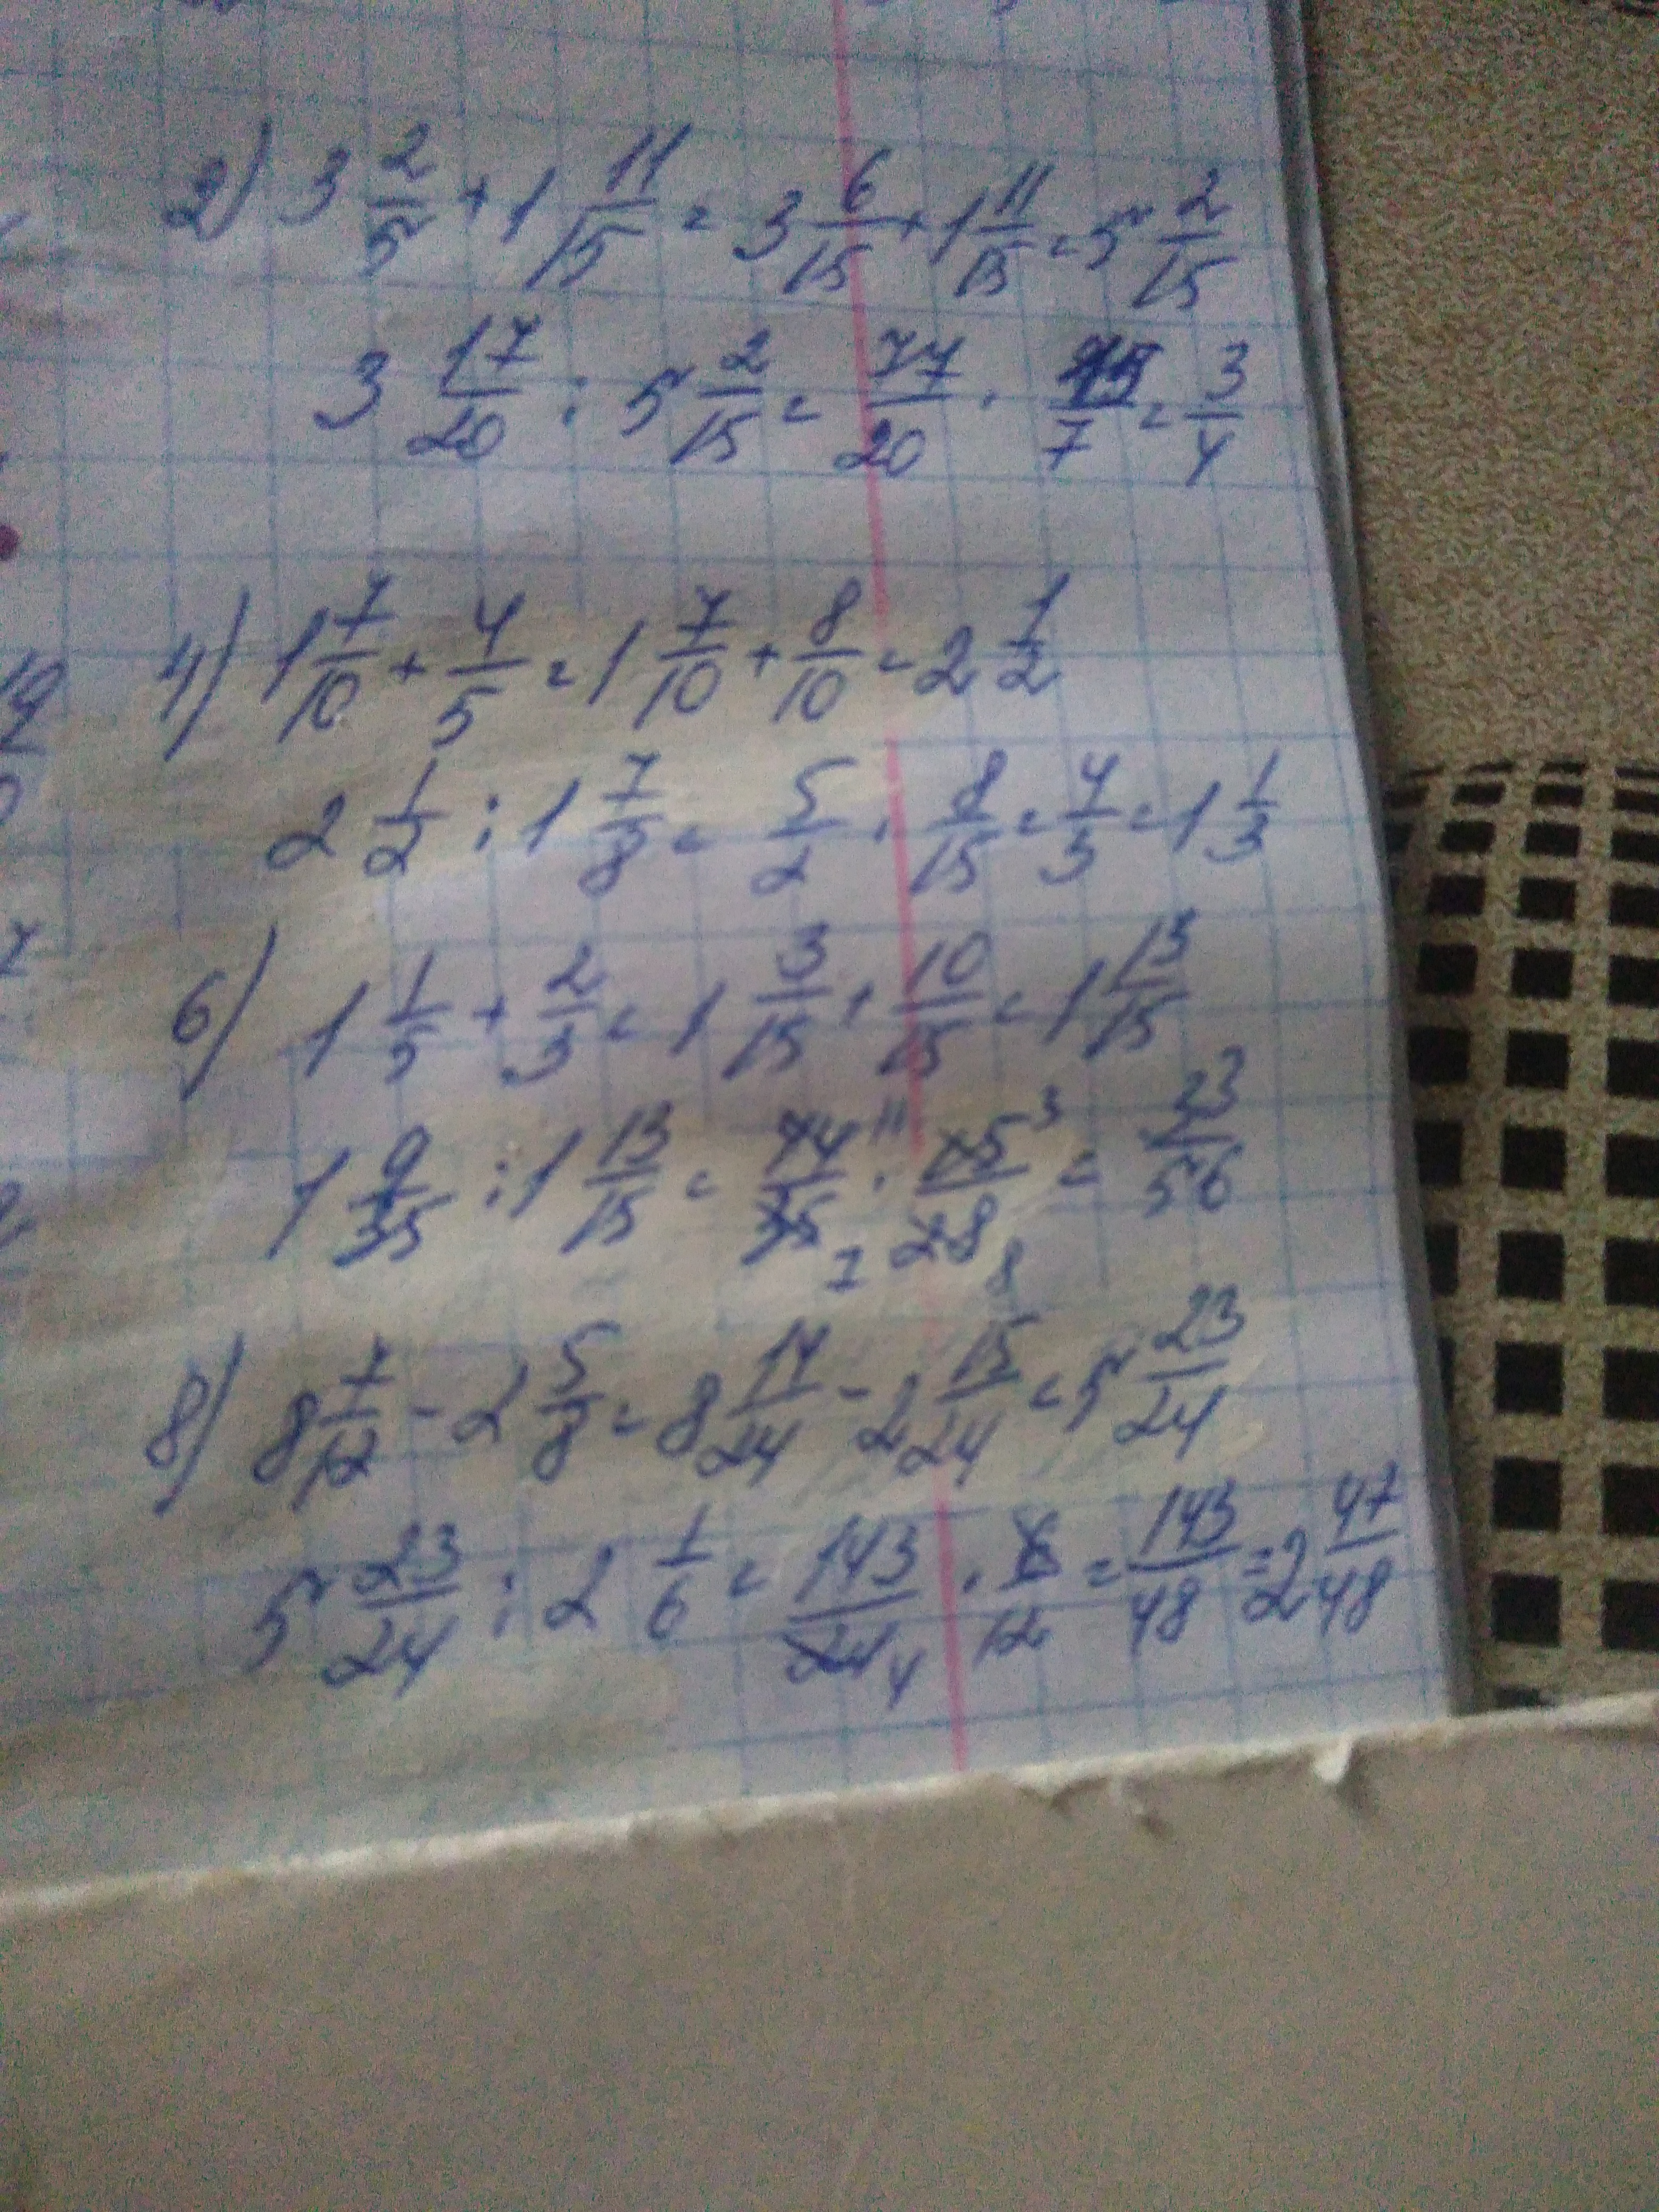 2) 3 2/5 + 1 11/15 = 3 6/15 + 1 11/15 = 5 2/15
3 17/20 : 5 2/15 = 77/20 · 15/7 = 3/4
4) 1 7/10 + 4/5 = 1 7/10 + 8/10 = 2 1/2
2 1/2 : 1 7/8 = 5/2 · 8/15 = 4/3 = 1 1/3
6) 1 1/5 + 2/3 = 1 3/15 + 10/15 = 1 13/15
1 9/35 : 1 13/15 = 44/35 7 · 11 15 3/28 8 = 33/56
8) 8 7/12 - 2 5/8 = 8 14/24 - 2 15/24 = 5 23/24
5 23/24 : 2 1/6 = 143/24 4 · 6/12 = 143/48 = 2 47/48